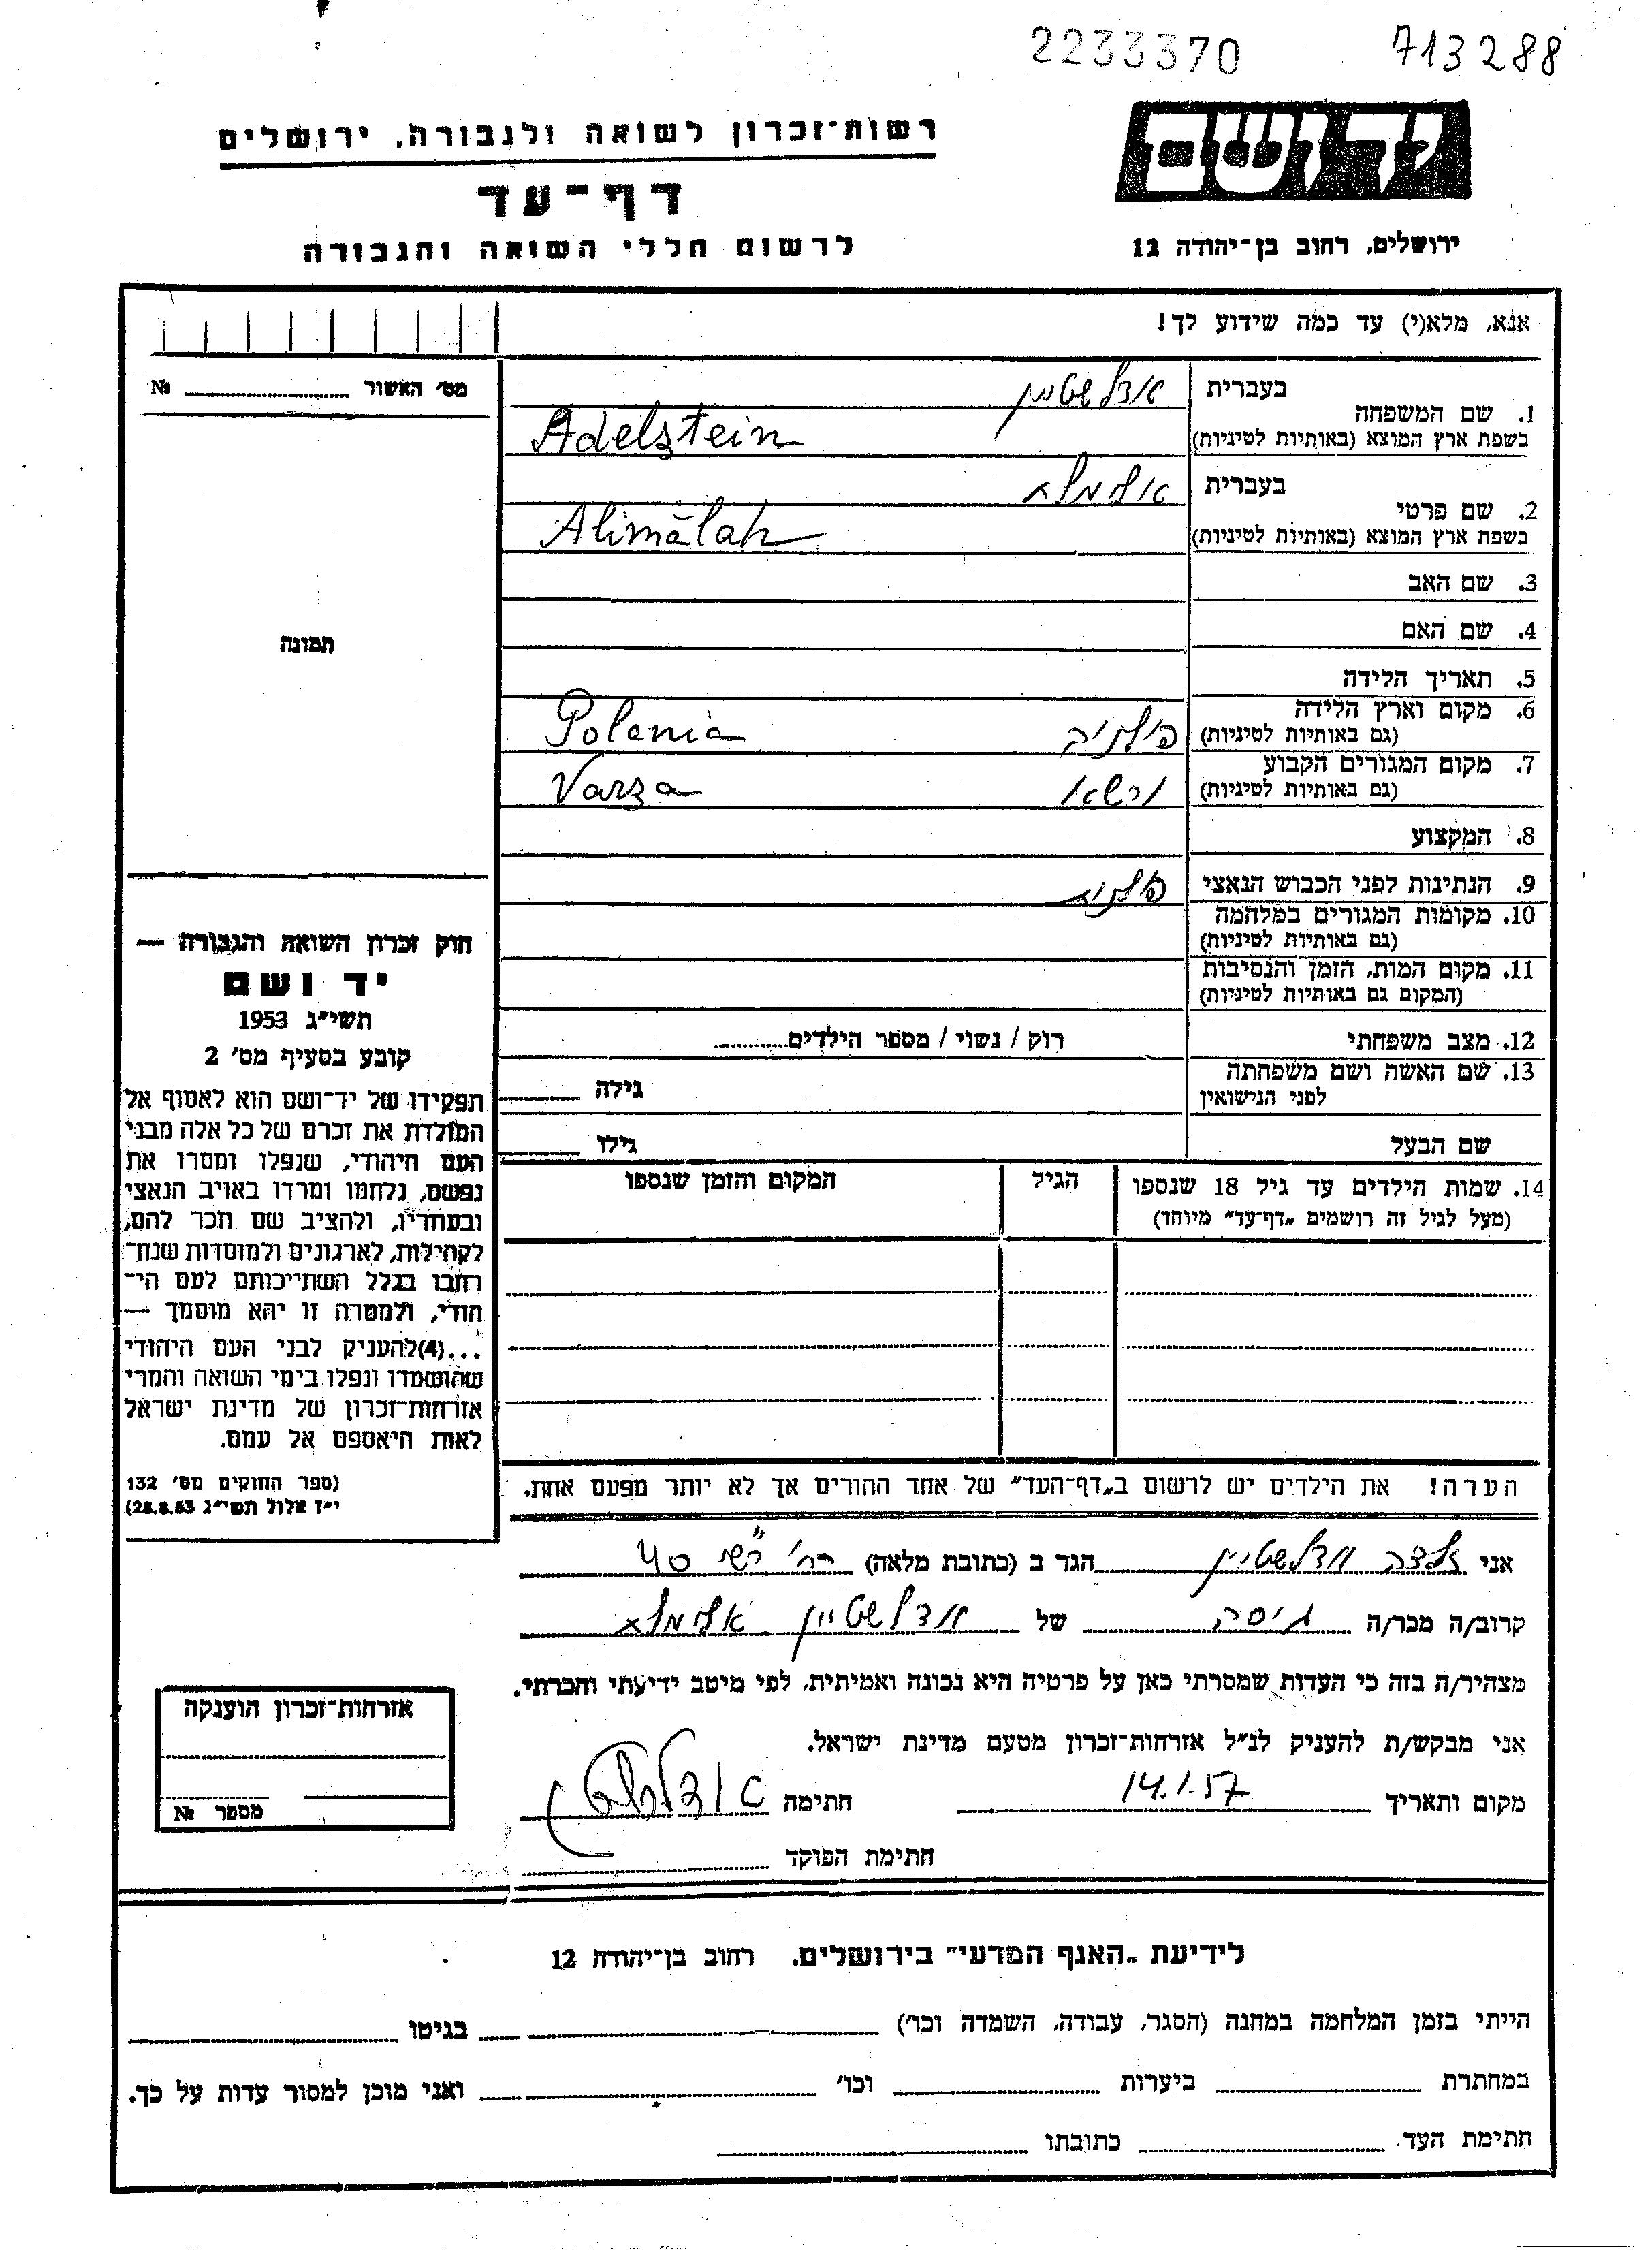 2233370 713288
רשות־זכרון לשואה ולגבורה, ירושלים
יד ושם
דף־עד
לרשום חללי השואה והגבורה
ירושלים, רחוב בן־יהודה 12
אנא, מלא(י) עד כמה שידוע לך!
מס׳ האשור № 
1. שם המשפחה
בעברית אדלשטיין
בשפת ארץ המוצא (באותיות לטיניות) Adelsztein
2. שם פרטי
בעברית אלימלך
בשפת ארץ המוצא (באותיות לטיניות) Alimālah
3. שם האב
4. שם האם
תמונה
5. תאריך הלידה
6. מקום וארץ הלידה
(גם באותיות לטיניות) פולניה Polania
7. מקום המגורים הקבוע
(גם באותיות לטיניות) ורשא Varza
8. המקצוע
9. הנתינות לפני הכבוש הנאצי פולנית
10. מקומות המגורים במלחמה
(גם באותיות לטיניות)
11. מקום המות, הזמן והנסיבות
(המקום גם באותיות לטיניות)
12. מצב משפחתי רוק / נשוי / מספר הילדים
13. שם האשה ושם משפחתה
לפני הנישואין גילה
שם הבעל גילו
14. שמות הילדים עד גיל 18 שנספו הגיל המקום והזמן שנספו
(מעל לגיל זה רושמים „דף־עד” מיוחד)
חוק זכרון השואה והגבורה —
יד ושם
תשי״ג 1953
קובע בסעיף מס׳ 2
תפקידו של יד־ושם הוא לאסוף אל
המולדת את זכרם של כל אלה מבני
העם היהודי, שנפלו ומסרו את
נפשם, נלחמו ומרדו באויב הנאצי
ובעוזריו, ולהציב שם וזכר להם,
לקהילות, לארגונים ולמוסדות שנח־
רבו בגלל השתייכותם לעם הי־
הודי, ולמטרה זו יהא מוסמך —
...(4)להעניק לבני העם היהודי
שהושמדו ונפלו בימי השואה והמרי
אזרחות־זכרון של מדינת ישראל
לאות היאספם אל עמם.
(ספר החוקים מס׳ 132
י״ז אלול תשי״ג 28.8.53)
הערה! את הילדים יש לרשום ב„דף־העד” של אחד ההורים אך לא יותר מפעם אחת.
אני אדלשטיין הגר ב (כתובת מלאה) רח׳ רש״י 40
קרוב/ה מכר/ה גיסה של אדלשטיין אלימלך
מצהיר/ה בזה כי העדות שמסרתי כאן על פרטיה היא נכונה ואמיתית, לפי מיטב ידיעתי והכרתי.
אני מבקש/ת להעניק לנ״ל אזרחות־זכרון מטעם מדינת ישראל.
מקום ותאריך 14.1.57 חתימה
חתימת הפוקד
אזרחות־זכרון הוענקה
מספר №
לידיעת „האגף המדעי” בירושלים. רחוב בן־יהודה 12
הייתי בזמן המלחמה במחנה (הסגר, עבודה, השמדה וכו׳) בגיטו
במחתרת ביערות וכו׳ ואני מוכן למסור עדות על כך.
חתימת העד כתובתו